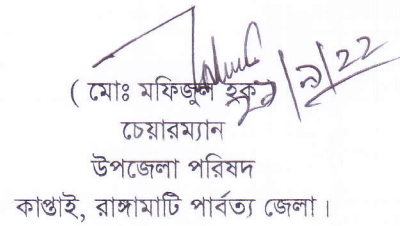 ( মোঃ মফিজুল হক )
চেয়ারম্যান
উপজেলা পরিষদ
কাপ্তাই, রাঙ্গামাটি পার্বত্য জেলা।